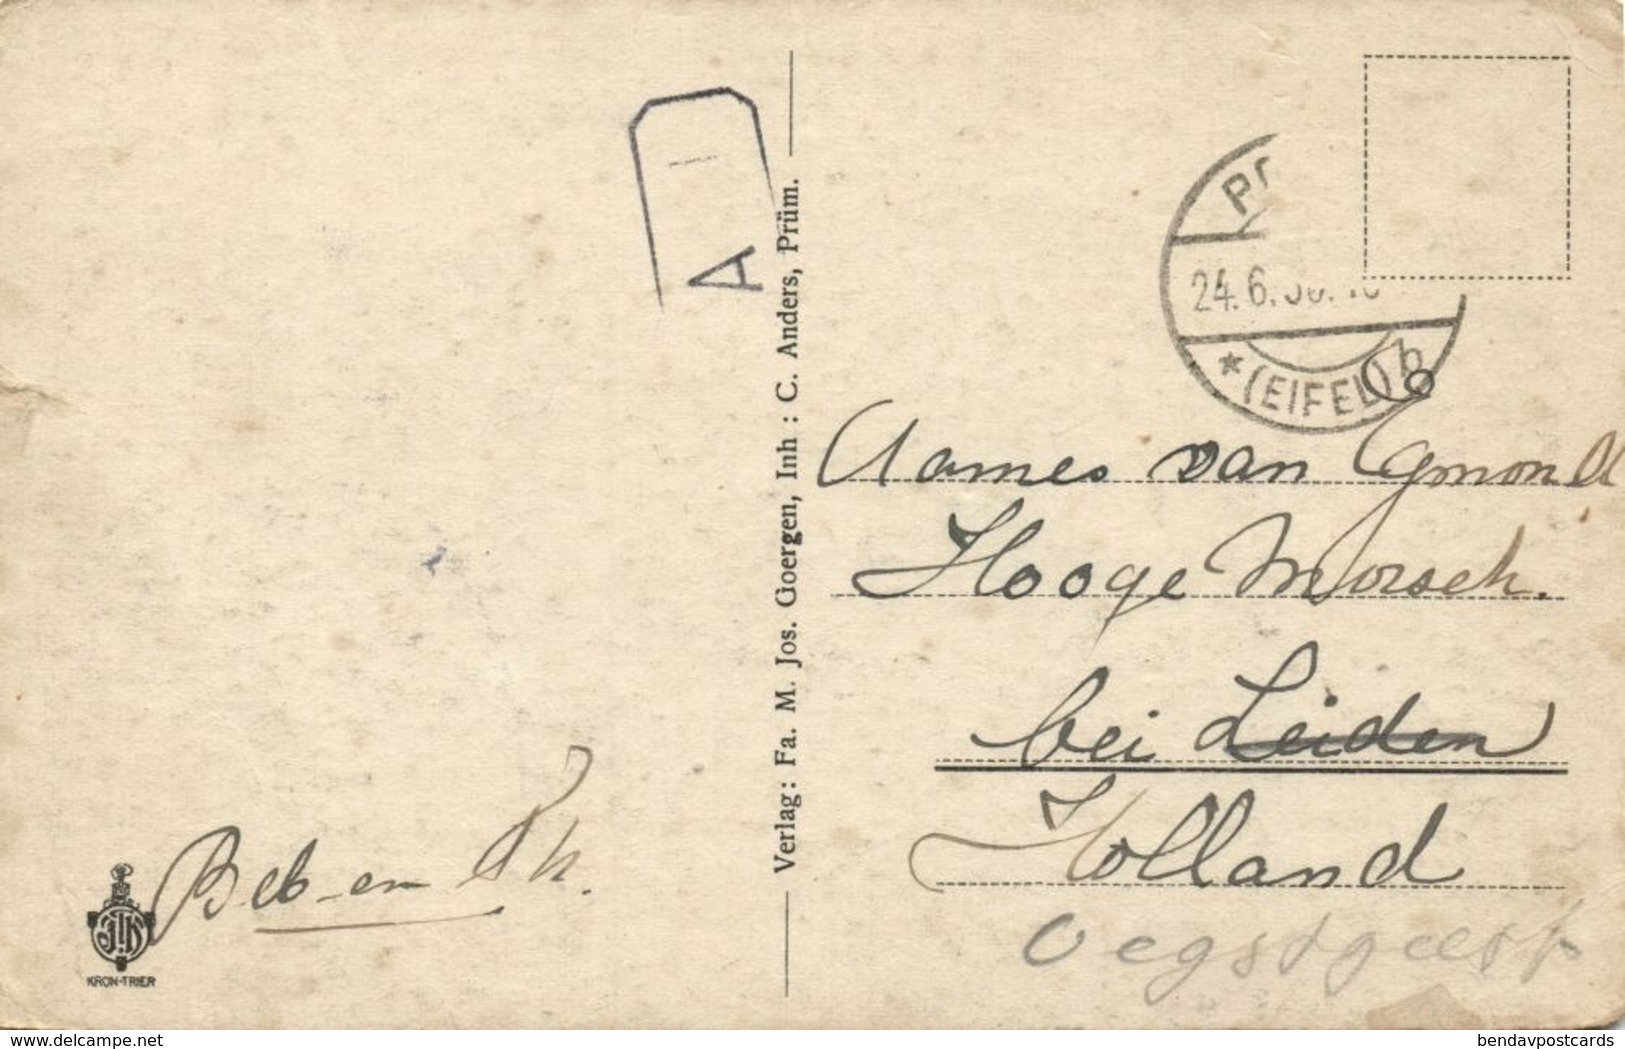 A
PR
24.6.30.
* (EIFEL) b
Verlag: Fa. M. Jos. Goergen, Inh : C. Anders, Prüm.
van Egmond
Hooge Morsch.
bei Leiden
Holland
Oegstgeest
Beb en
JK
KRON-TRIER
www.delcampe.net
bendavpostcards